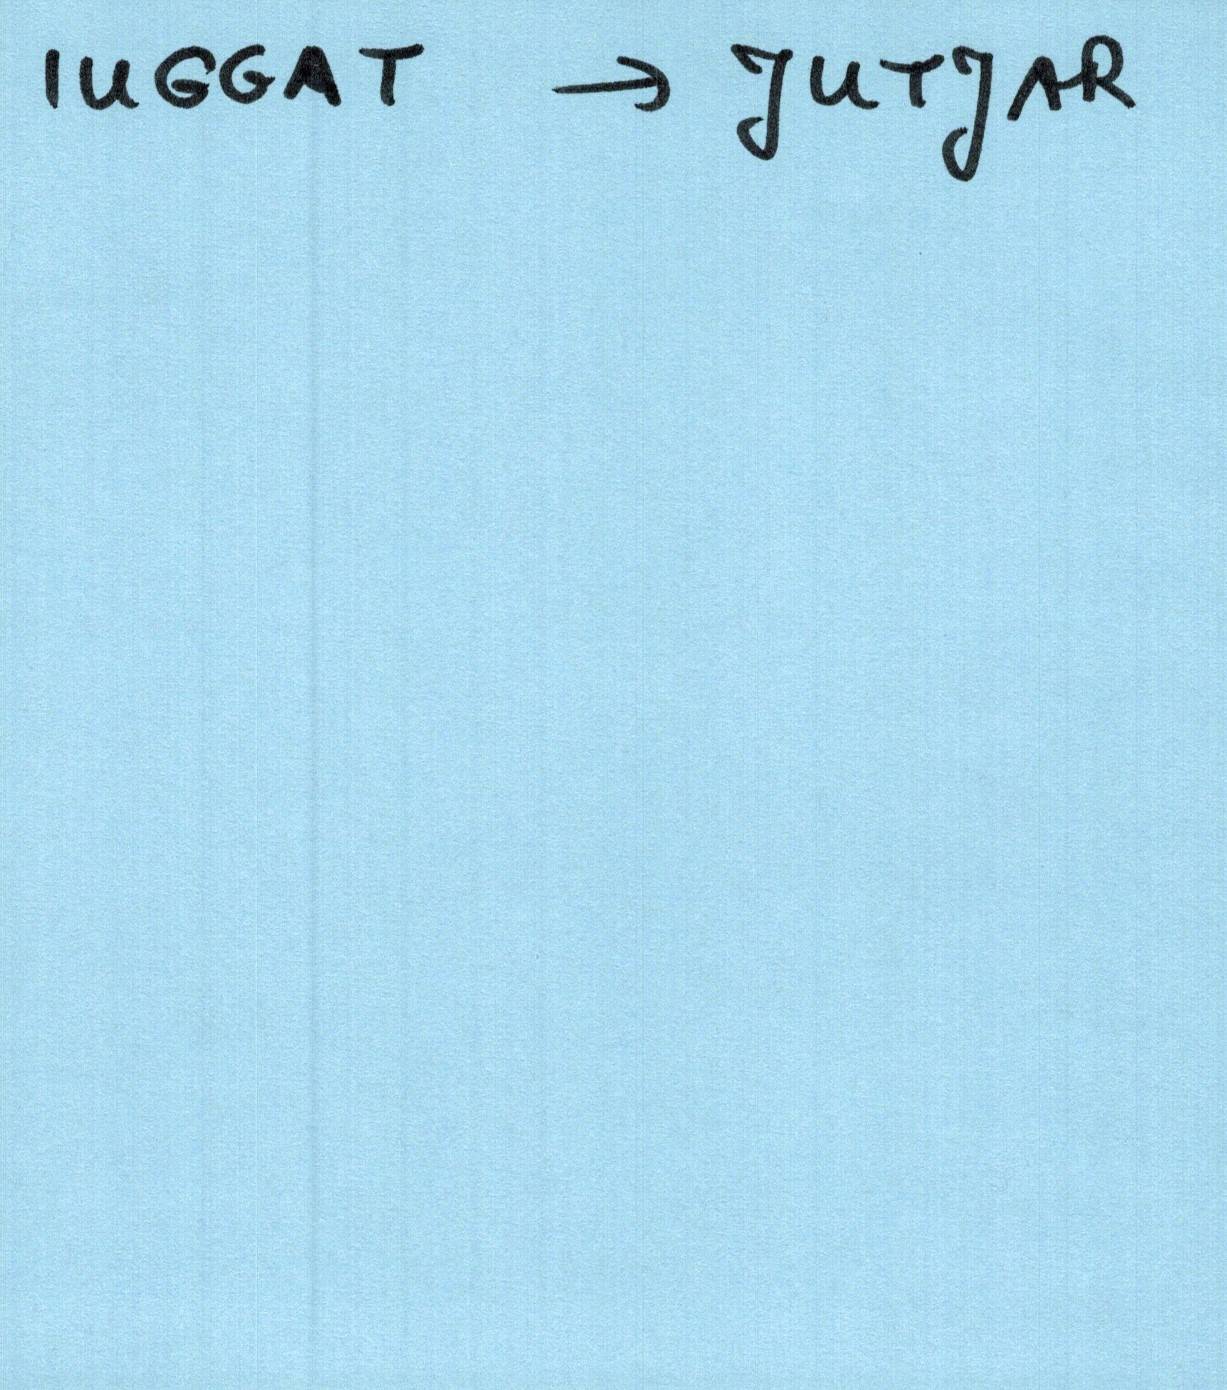 IUGGAT → JUTJAR